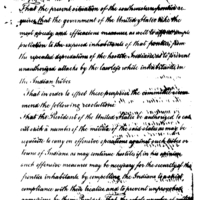 That the present situation of the southwestern frontier re
quires that the government of the United States take the
most speedy and efficacious measures as well to afford
protection to the exposed inhabitants of that frontier from
the repeated depredations of the hostile Indians as to prevent
unauthorized attacks by the lawless white inhabitants on
the Indian tribes
That in order to effect these purposes the committee recom
mend the following resolutions
That the President of the United States be authorized to
call such a number of the militia of the said states as may be
requisite to carry on offensive operations against any nation or
town of Indians as may continue hostile if in his opinion
such offensive measures may be necessary for the security of the
frontier inhabitants by compelling the Indians to a just
compliance with their treaties and to prevent unprovoked
aggressions